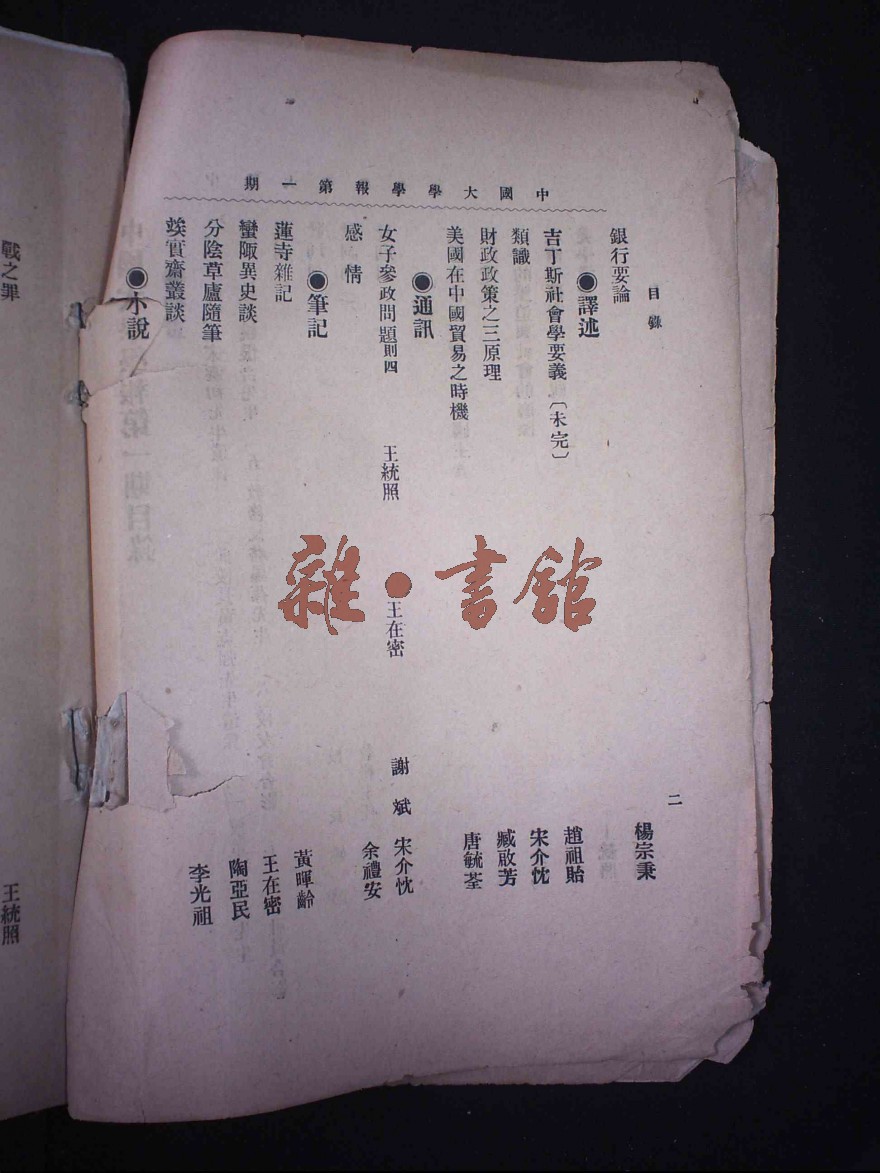 中國大學學報第一期
目錄
二
銀行要論 楊宗秉
●譯述
吉丁斯社會學要義〔未完〕 趙祖貽
類識 宋介忱
財政政策之三原理 臧啟芳
美國在中國貿易之時機 唐毓荃
●通訊
女子參政問題則四 王統照 王在密 謝斌 宋介忱
感情 余禮安
●筆記
蓮寺雜記 黃暉齡
蠻陬異史談 王在密
分陰草廬隨筆 陶亞民
竢實齋叢談 李光祖
●小說
戰之罪 王統照
雜·書館